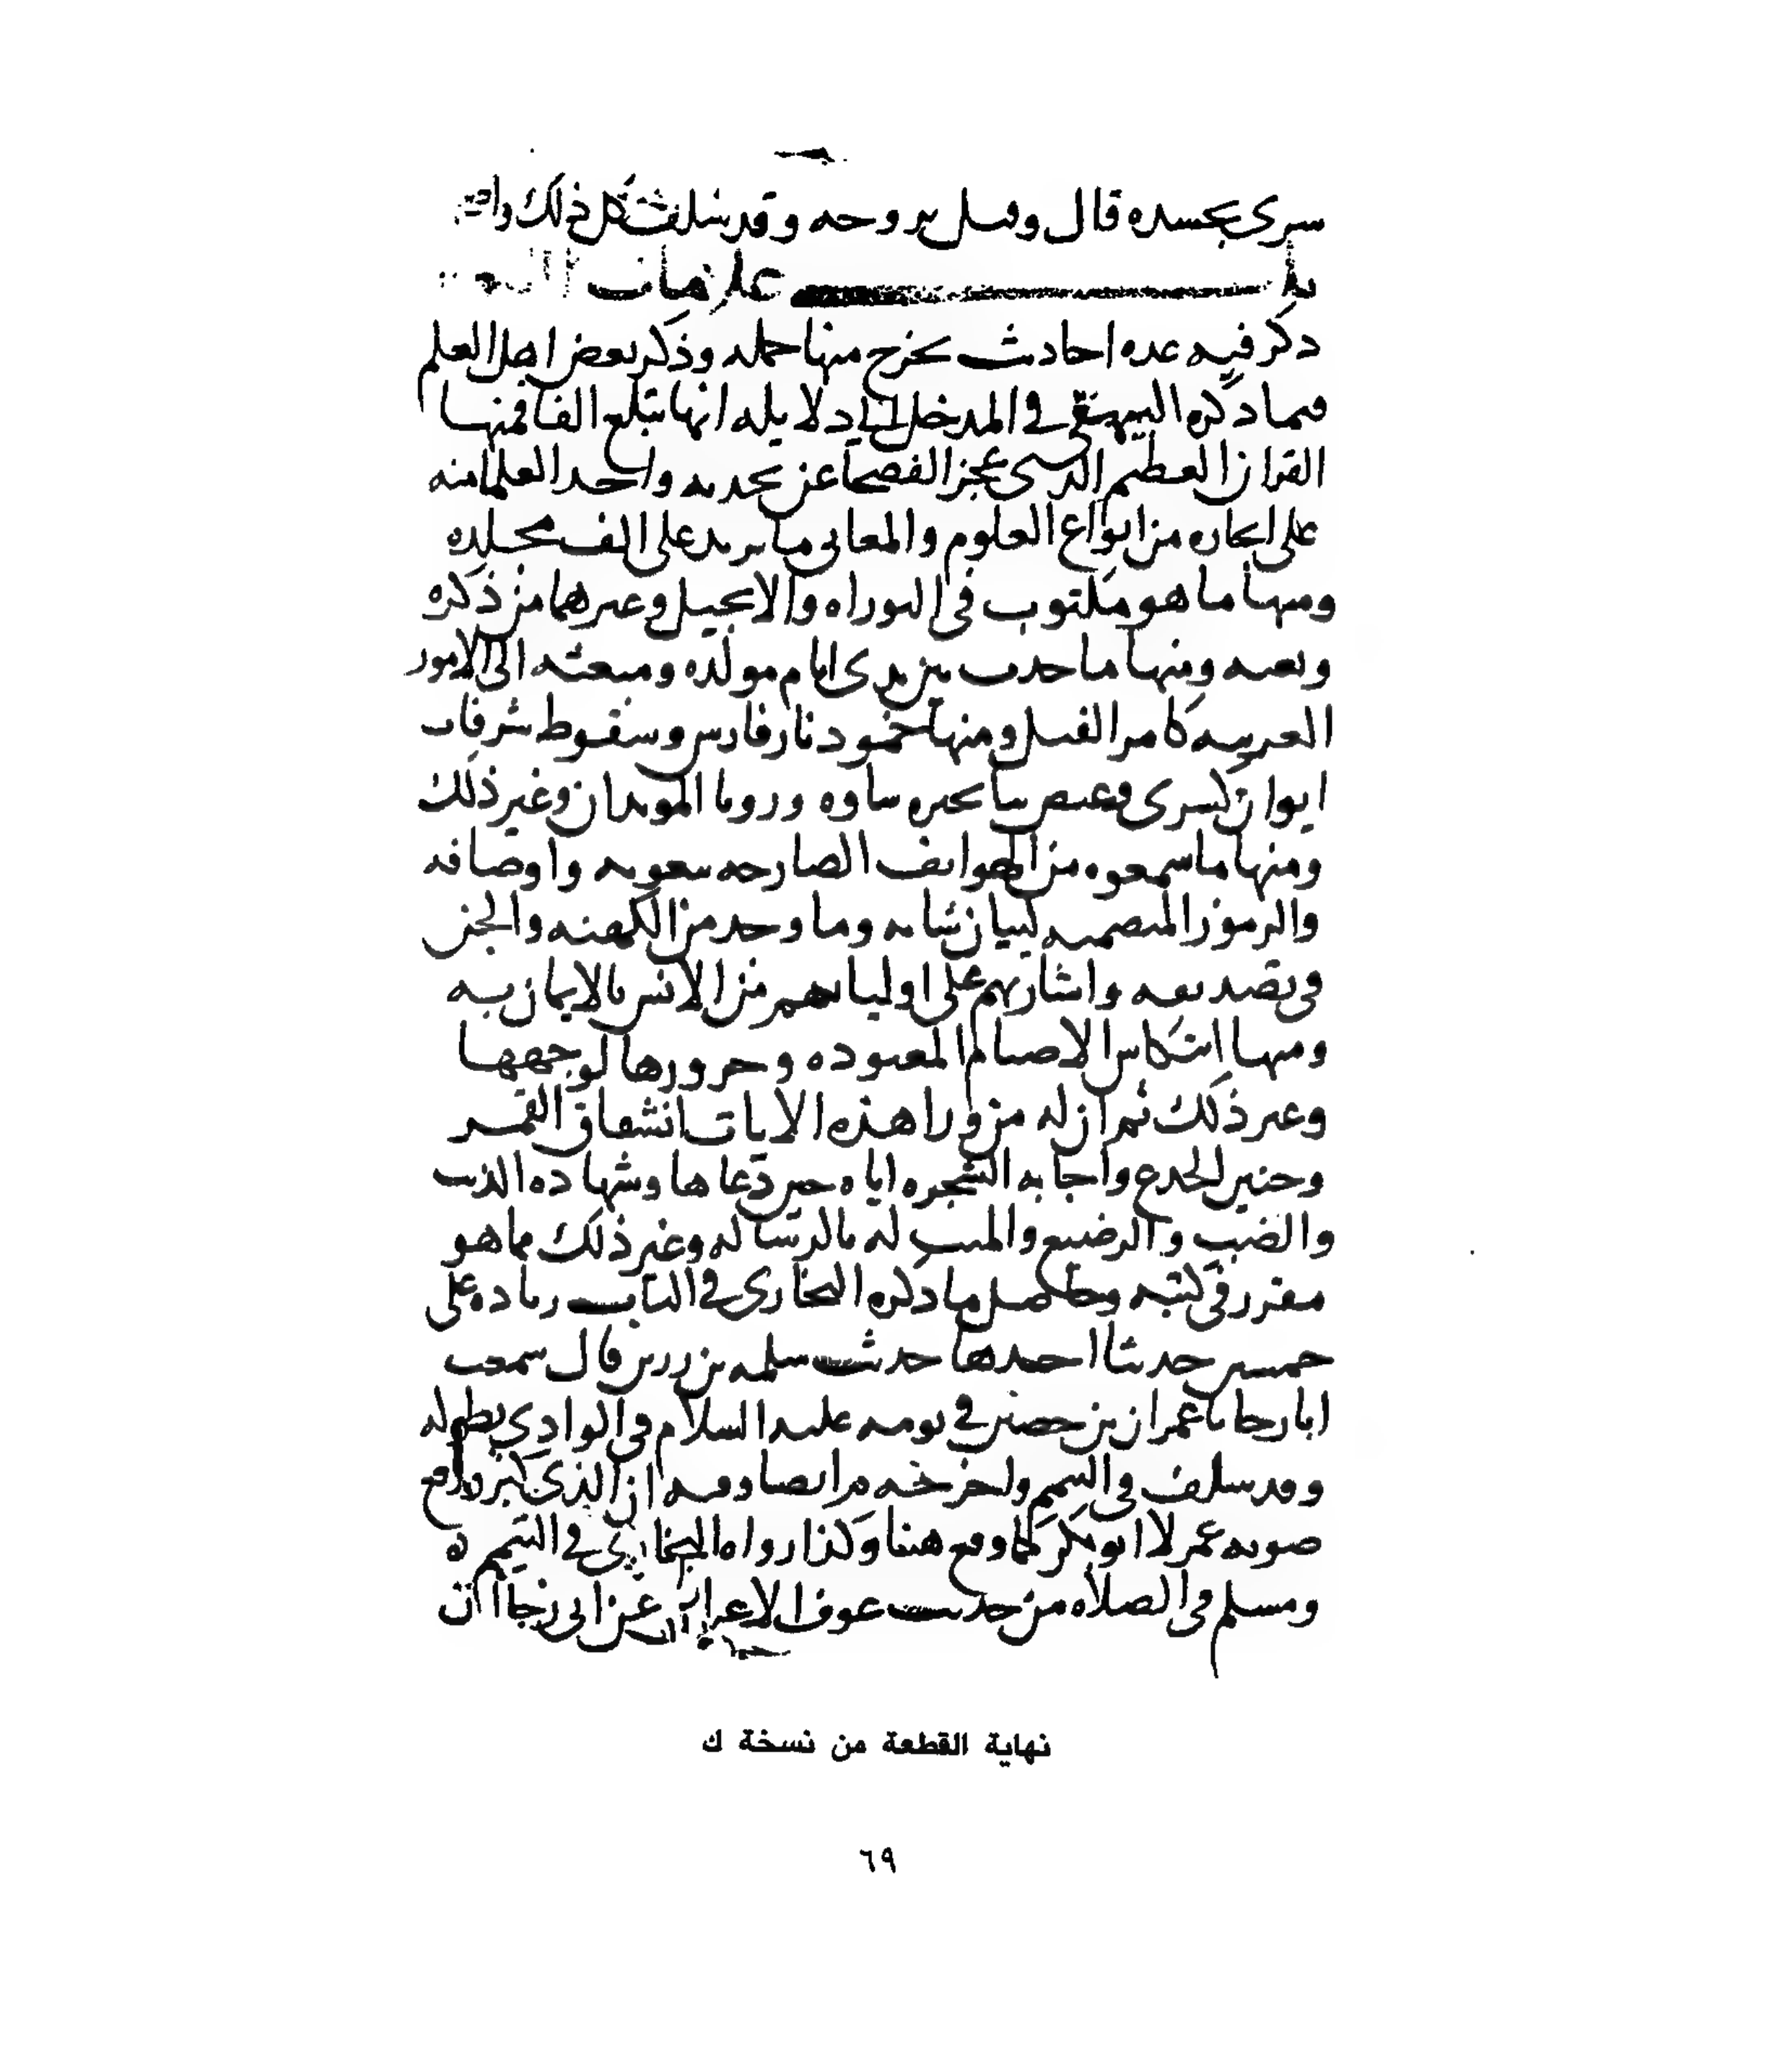 سرى بجسده قال وقيل بروحه وقد سلف كل ذلك
باب علامات
ذكر فيه عده احاديث يخرج منها جمله وذكر بعض اهل العلم
فيما ذكره البيهقي في المدخل الى دلايله انها تبلغ الفا فمنها
القران العظيم الذي عجز الفصحا عن تحديه واحد العلما منه
على ايجازه من انواع العلوم والمعاني ما يزيد على الف مجلده
ومنها ما هو مكتوب في التوراه والانجيل وغيرهما من ذكره
ونعته ومنها ما حدث بين يدي ايام مولده ومبعثه الى الامور
الغريبه كامر الفيل ومنها خمود نار فارس وسقوط شرفات
ايوان كسرى وغيض ما بحيره ساوه ورويا الموبدان وغير ذلك
ومنها ما سمعوه من الهواتف الصارخه بنعوته واوصافه
والرموز المتضمنه لبيان شانه وما وجد من الكهنه والجن
في تصديقه واشارتهم على اوليايهم من الانس بالايمان به
ومنها انتكاس الاصنام المعبوده وخرورها لوجهها
وغير ذلك ثم ان له من ورا هذه الايات انشقاق القمر
وحنين الجذع واجابه الشجره اياه حين دعاها وشهاده الذيب
والضب والرضيع والميت له بالرساله وغير ذلك مما هو
مقرر في كتبه وحاصل ما ذكره البخاري في الباب زياده على
خمسين حديثا احدها حديث سلمه بن زرير قال سمعت
ابا رجا نا عمران بن حصين في نومه عليه السلام في الوادي بطوله
وقد سلف في التيمم واخرجه م ايضا وفيه ان الذي كبر ورفع
صوته عمر لا ابو بكر كما وقع هنا وكذا رواه البخاري في التيمم ه
ومسلم في الصلاه من حديث عوف الاعرابي عن ابي رجا ان
نهاية القطعة من نسخة ك
٦٩